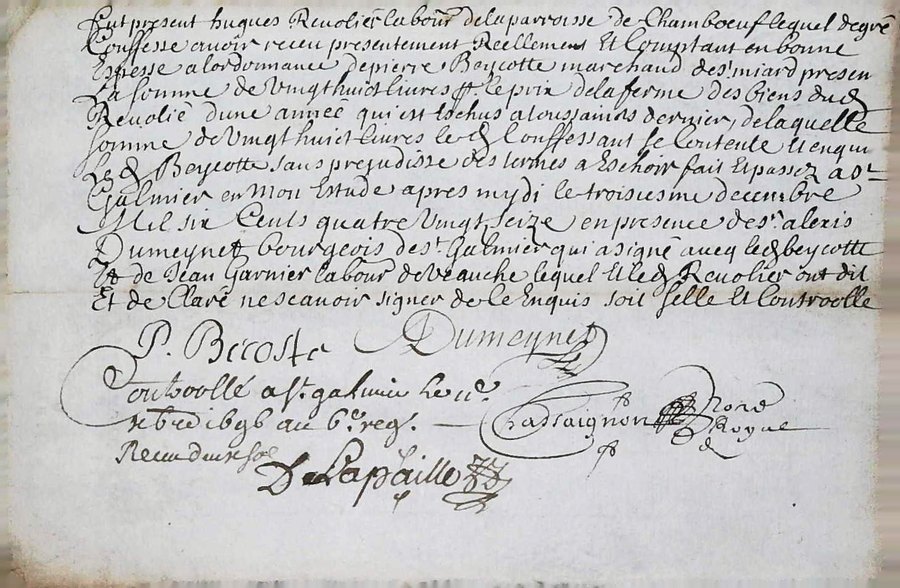 Fut present hugues Revolier labour delaparroisse de Chamboeuf lequel degré
Confesse avoir receu presentement Reellement Et Comptant en bonne
Espesse alordonnance depierre Beycotte marchand dest miard presen
La somme de Vingthuict livres p le prix delaferme des biens dud
Revolié dune année qui est Eschus a toussainots dernier, delaquelle
somme deVingthuict livres led Conffessant se Contente Et enqui
Led Beycotte sans prejudisse des termes a Eschoir fait Et passez a St
Galmier en Mon Estude apres mydi le troisiesme decembre
Mil six Cents quatre Vingt seize en presence de sr alexis
Dumeynet bourgeois dest Galmier qui a signé avecq led beycotte
Et de Jean Garnier labour de Veauche lequel Et led Revolier ont dit
Et de Claré ne scavoir signer de ce Enquis soit scelle Et Controolle
P. Becoste Dumeynet
Controollé a st galmier le
xbre 1696 au 6e reg.
Chassaignon Nore Royal
Receu
DeLapaille